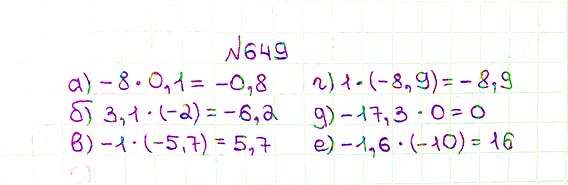 №649
а) -8 · 0,1 = -0,8
б) 3,1 · (-2) = -6,2
в) -1 · (-5,7) = 5,7
г) 1 · (-8,9) = -8,9
д) -17,3 · 0 = 0
е) -1,6 · (-10) = 16